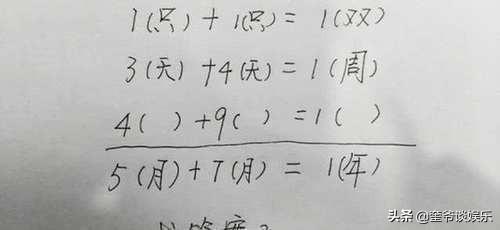 1(只) + 1(只) = 1(双)
3(天) + 4(天) = 1(周)
4( ) + 9( ) = 1( )
5(月) + 7(月) = 1(年)
头条 @奎爷谈娱乐